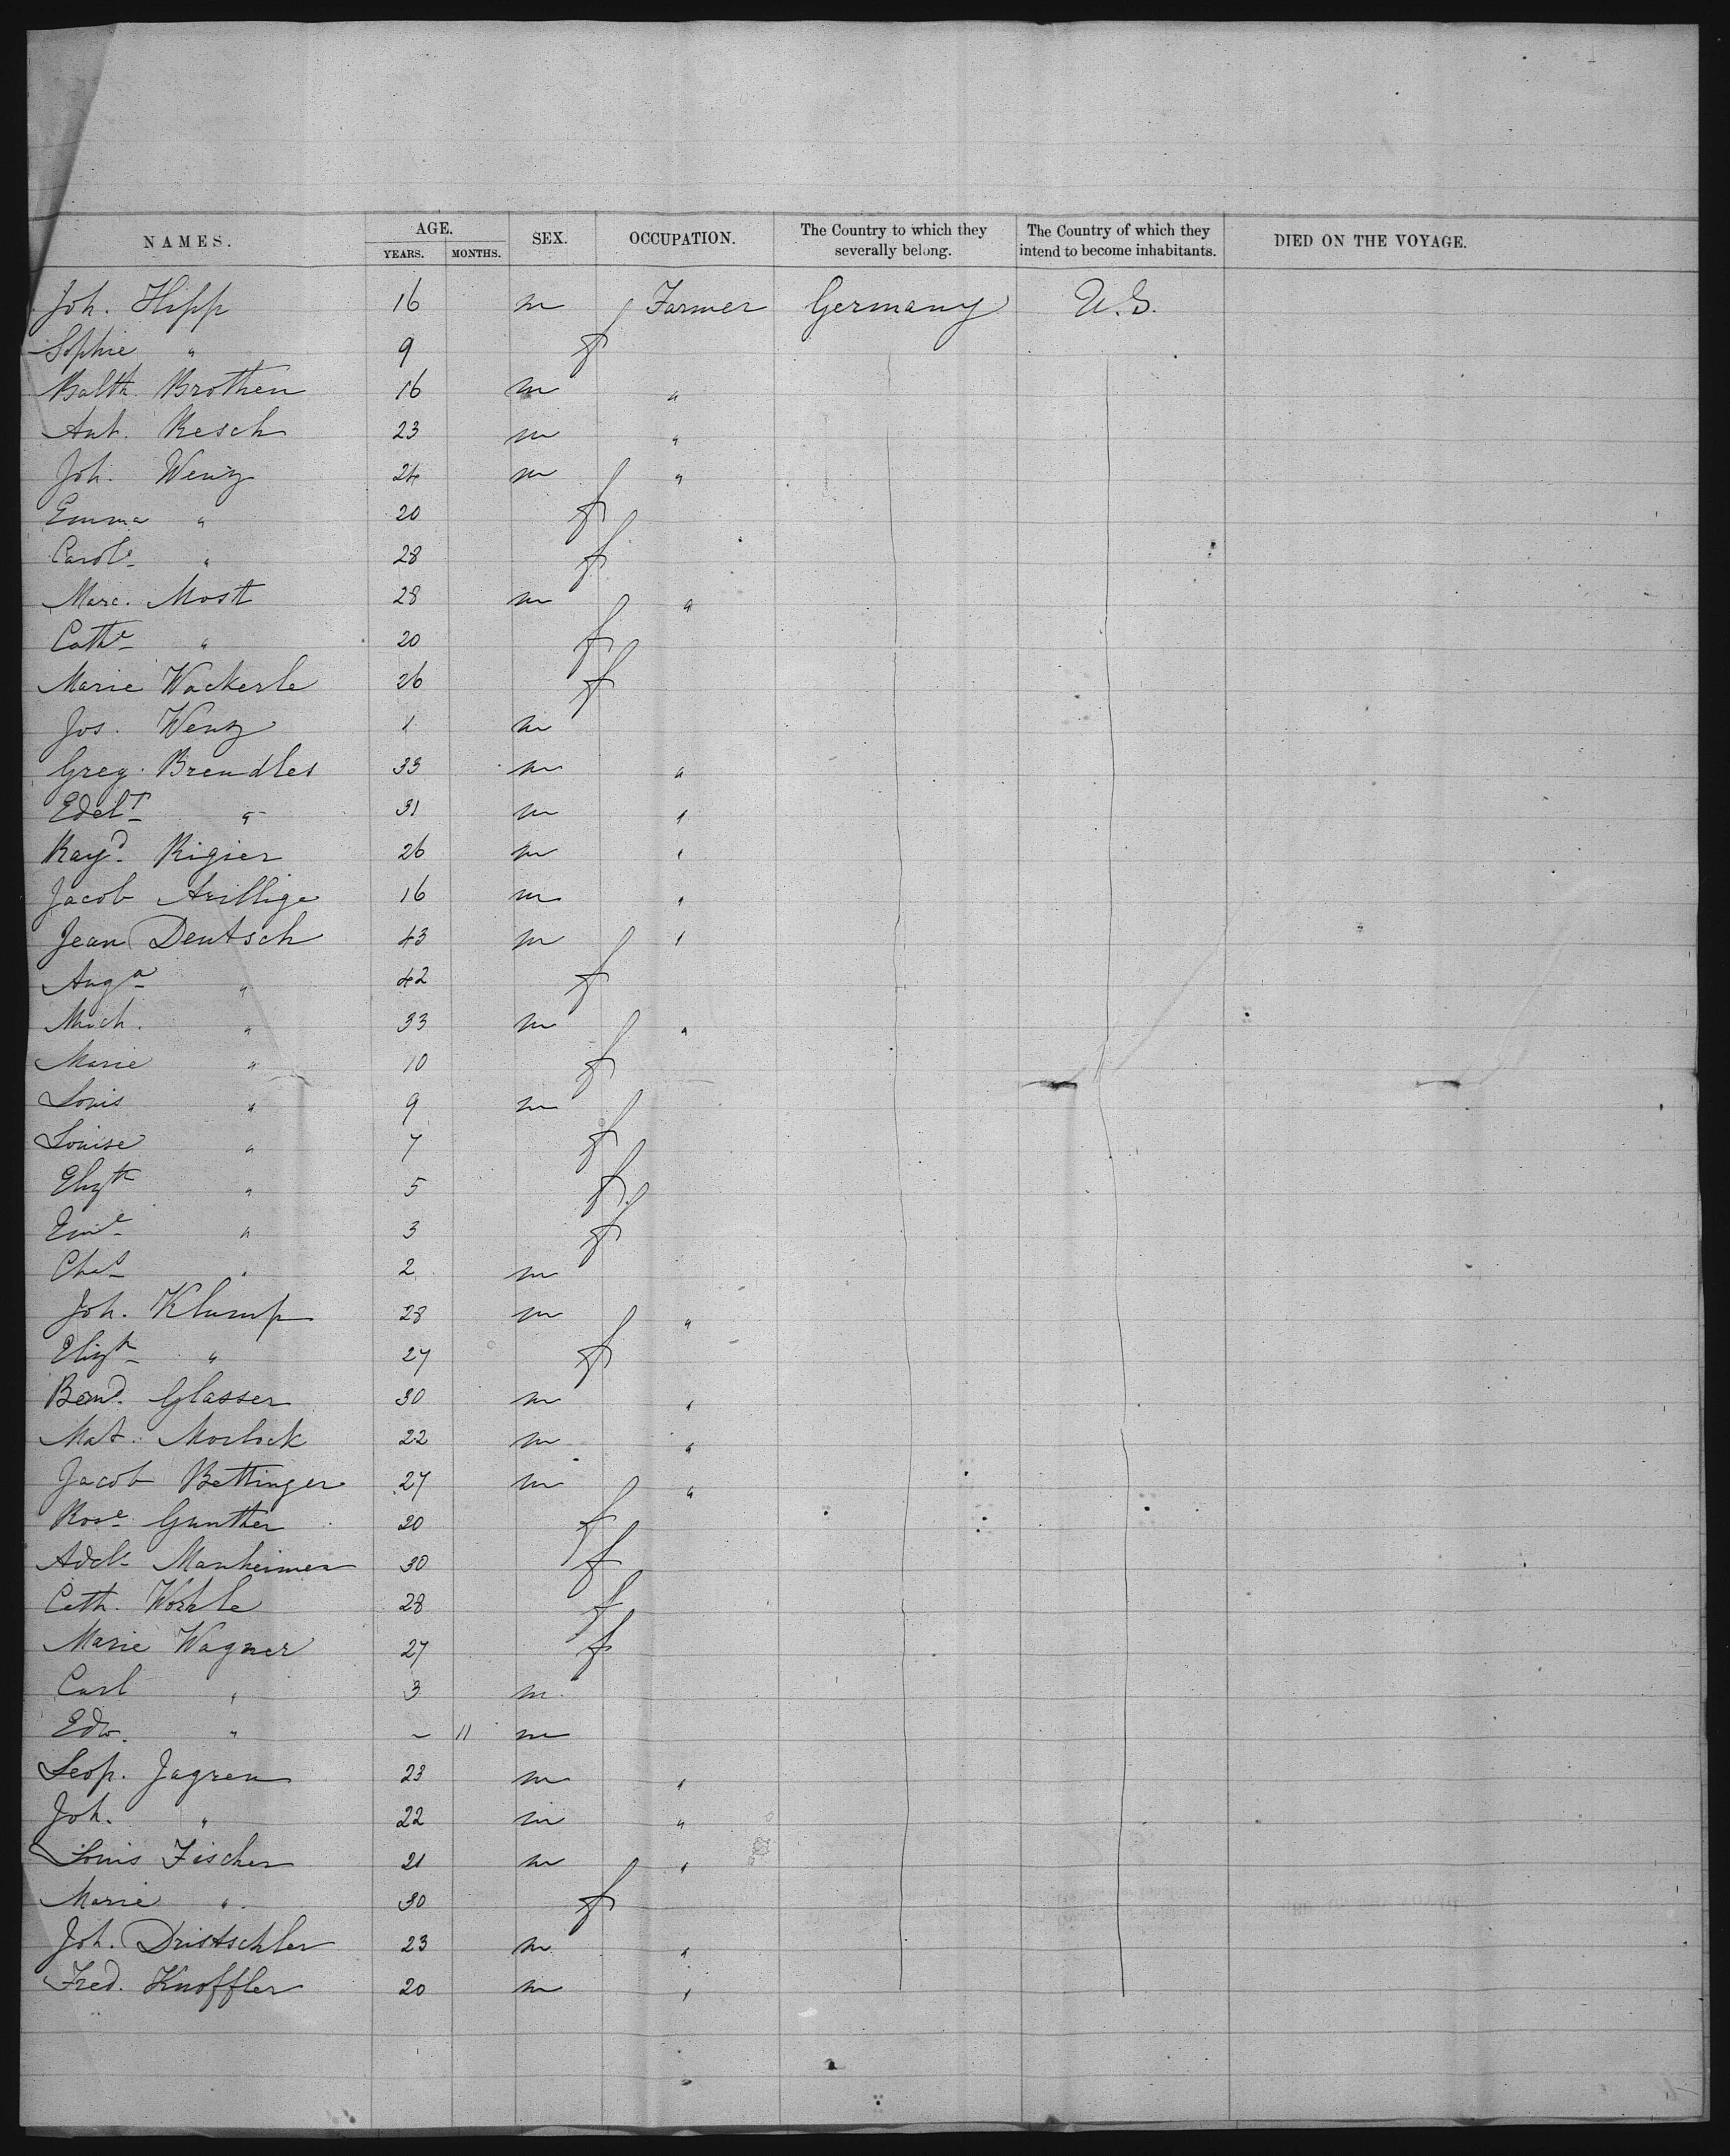 NAMES. AGE. SEX. OCCUPATION. The Country to which they severally belong. The Country of which they intend to become inhabitants. DIED ON THE VOYAGE.
YEARS. MONTHS.
Joh. Hipp 16 m Farmer Germany U.S.
Sophie " 9 f
Balth. Brothen 16 m "
Ant. Resch 23 m "
Joh. Wenz 24 m "
Emma " 20 f
Carole " 28 f
Marc. Mosth 28 m "
Cathe " 20 f
Marie Wackerle 26 f
Jos. Wenz 1 m
Greg. Brendles 33 m "
Edelt " 31 m "
Rayd. Rigier 26 m "
Jacob 16 m "
Jean Deutsch 43 m "
Auga " 42 f
Mich. " 33 m "
Marie " 10 f
Louis " 9 m
Louise " 7 f
Elizth " 5 f
Emie " 3 f
Chas " 2 m
Joh. Klump 28 m "
Elizth " 27 f
Bernd. Glasser 30 m "
Mat. Morlock 22 m "
Jacob Bettinger 27 m "
Rose Gunther 20 f
Adele Manheimer 30 f
Cath. Wohrle 28 f
Marie Wagner 27 f
Carl " 3 m
Edw. " ~ 11 m
Leop. Jagren 23 m "
Joh. " 22 m "
Louis Fischer 21 m "
Marie " 30 f
Joh. Dristschler 23 m "
Fred. Knoffler 20 m "